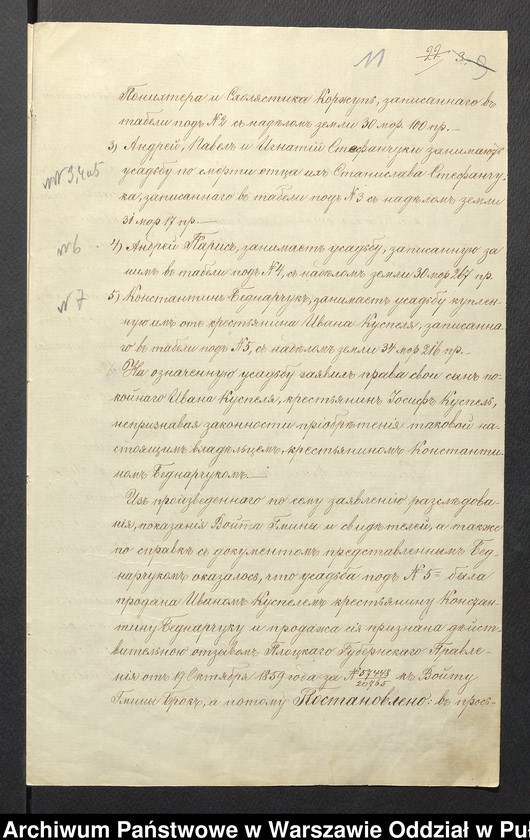 11
22 3. 9
Понихтера и Схолястика Коржупъ, записаннаго въ
табели подъ №2 съ надѣломъ земли 30 мор. 100 пр. —
3) Андрей, Павелъ и Игнатій Стефанчуки занимаютъ
№№ 3, 4 и 5
усадьбу по смерти отца ихъ Станислава Стефанчу-
ка, записаннаго въ табели подъ №3 съ надѣломъ земли
31 мор 17 пр. —
№6
4) Андрей Парисъ, занимаетъ усадьбу, записанную за
нимъ въ табели подъ №4, съ надѣломъ земли 30 мор 267 пр.
№7
5) Константинъ Беднарчукъ, занимаетъ усадьбу куплен-
ную имъ отъ крестьянина Ивана Куспеля, записанна-
го въ табели подъ №5, съ надѣломъ земли 34 мор 216 пр. —
На означенную усадьбу заявилъ права свои сынъ по-
койнаго Ивана Куспеля, крестьянинъ Іосифъ Куспель,
непризнавая законности пріобрѣтенія таковой на-
стоящимъ владѣльцемъ, крестьяниномъ Константи-
номъ Беднарчукомъ. —
Изъ произведеннаго по сему заявленію разслѣдова-
нія, показанія Войта Гмины и свидѣтелей, а также
по справкѣ съ документомъ представленнымъ Бед-
нарчукомъ оказалось, что усадьба подъ №5 = была
продана Иваномъ Куспелемъ крестьянину Констан-
тину Беднарчуку и продажа сія признана дѣйст-
вительною отзывомъ Плоцкаго Губернскаго Правле-
нія отъ 19 Октября 1859 года за № 57448/20765 къ Войту
Гмины Брокъ, а потому Постановлено: въ прось-
Archiwum Państwowe w Warszawie Oddział w Pu